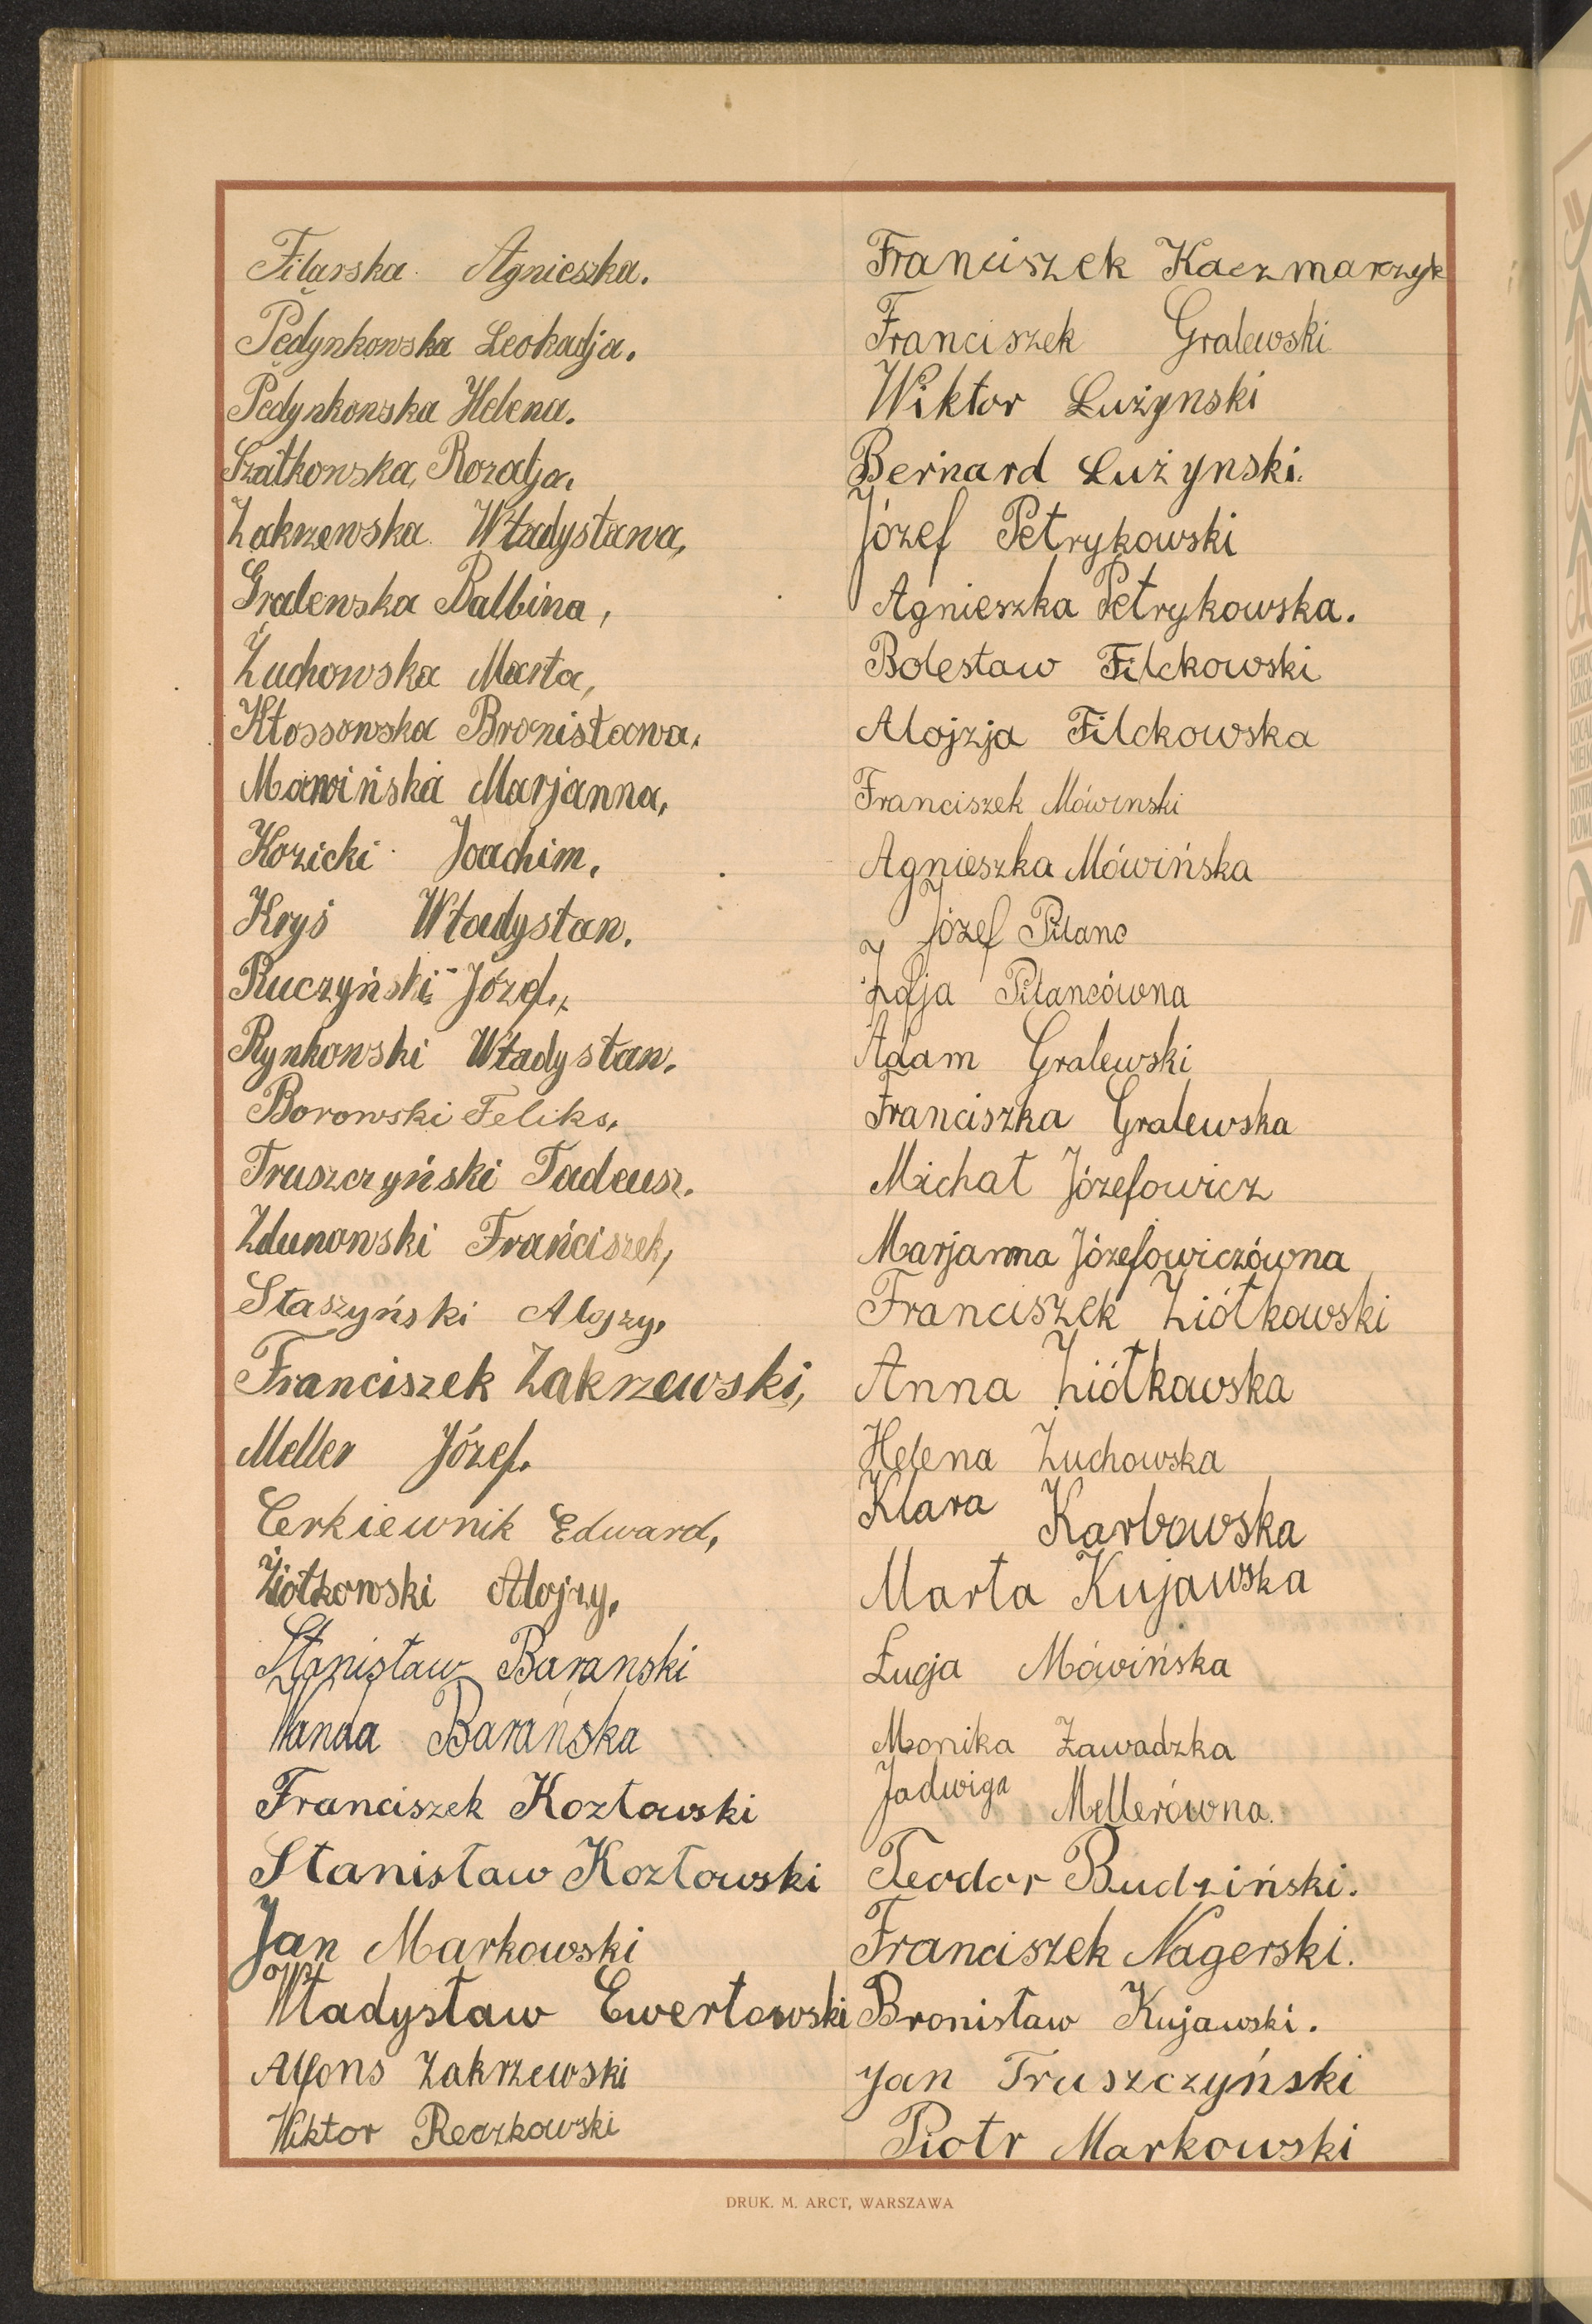 Filarska Agnieszka.
Pędynkowska Leokadja.
Pędynkowska Helena.
Szatkowska, Rozalja.
Zakrzewska Władysława,
Gralewska Balbina,
Żuchowska Marta,
Kłossowska Bronisława.
Mówińska Marjanna,
Kozicki Joachim.
Kryś Władysław.
Ruczyński Józef.
Rynkowski Władysław.
Borowski Feliks.
Truszczyński Tadeusz.
Zdunowski Franciszek,
Staszyński Alojzy.
Franciszek Zakrzewski,
Meller Józef.
Cerkiewnik Edward,
Ziółkowski Alojzy.
Stanisław Baranski
Wanda Barańska
Franciszek Kozłowski
Stanisław Kozłowski
Jan Markowski
Władysław Ewertowski
Alfons Zakrzewski
Wiktor Reczkowski
Franciszek Kaczmarczyk
Franciszek Gralewski
Wiktor Lużynski
Bernard Lużynski.
Józef Petrykowski
Agnieszka Petrykowska.
Bolesław Filckowski
Alojzja Filckowska
Franciszek Mówinski
Agnieszka Mówińska
Józef Pilanc
Zofja Pilancówna
Adam Gralewski
Franciszka Gralewska
Michał Józefowicz
Marjanna Józefowiczówna
Franciszek Ziółkowski
Anna Ziółkowska
Helena Żuchowska
Klara Karbowska
Marta Kujawska
Łucja Mówińska
Monika Zawadzka
Jadwiga Mellerówna.
Teodor Budziński.
Franciszek Nagerski.
Bronisław Kujawski.
Jan Truszczyński
Piotr Markowski
DRUK. M. ARCT, WARSZAWA